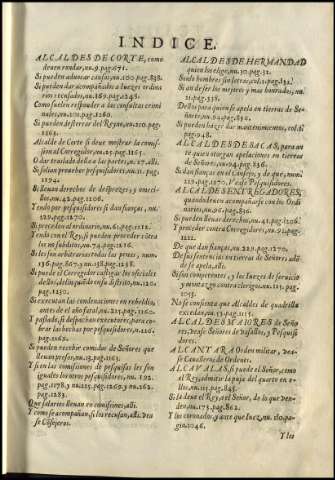 INDICE.
ALCALDES DE CORTE, como
deuen rondar, nu.9.pag.671.
Si pueden aduocar causas, nu.100.pag.838.
Si pueden dar acompañados a luezes ordina
rios recusados, nu.169.pag.1348.
Como suelen responder a las consultas crimi
nales, nu.101.pag.1260.
Si pueden desterrar del Reyno, nu.210.pag.
1263.
Alcalde de Corte si deue mostrar la comis-
sion al Corregidor, nu.45.pag.1163.
O dar traslado della a las partes, nu.47.alli.
Si solian prouehar pesquisidores, nu.51.pag.
1194.
Si lleuan derechos de desprezes, y omeci-
llos, nu.42.pag.1206.
Y endo por pesquisidores si dan fianças, nu.
229.pag.1270.
Si preceden al ordinario, nu.61.pag.1212.
Y endo con el Rey, si puede proceder cõtra
los subditos, nu.74.pag.1216.
Si les son arbitrarias todas las penas, num.
136.pag.867.y nu.138.pag.1238.
Si puede el Corregidor castigar los oficiales
destos, delinquiendo en su distrito, nu.120.
pag.1130.
Si executan las condenaciones en rebeldia,
antes de el año fatal, nu.231.pag.1260.
Y passado, si despachan executores, para co-
brar las hechas por pesquisidores, nu.226.
pag.1269.
Si pueden recebir comidas de Señores que
lleuan presos, nu.13.pag.1163.
Y si en las comisiones de pesquisas les son
iguales los otros pesquisidores, nu.192.
pag.1278.y nu.255.pag.1269.y nu.262.
pag.1283.
Que salarios lleuan en comisiones, alli.
Y como se acompañan si los recusan, alli. Vea
se Cõsejeros.
ALCALDES DE HERMANDAD
quien los elige, nu.30.pag.31.
Si son perpetuos, alli, col.2.pag.32.
Si an de ser los mejores y mas honrados, nu.
11.pag.336.
Destos para quien se apela en tierras de Se-
ñores, nu.94.pag.836.
Si pueden hazer dar mantenimientos, col.2.
pag.948.
ALCALDES DE SACAS, para an
te quien otorgan apelaciones en tierras
de Señores, nu.94.pag.836.
Si dan fianças en el Consejo, y de que, num.
229.pag.1270. Vease Pesquisidores.
ALCALDES ENTREGADORES,
quando deuen acompañarse con los Ordi
narios, nu.56.pag.836.
Si pueden lleuar derechos, nu.41.pag.1206.
Y proceder contra Corregidores, nu.92.pag.
1221.
De que dan fianças, nu.229.pag.1270.
De sus sentencias en tierras de Señores, adõ
de se apela, alli.
Si son competentes, y los Iuezes de seruicio
y montazgo contra clerigos, nu.51.y nu.113.
pag.151.
No se consienta que Alcaldes de quadrilla
excedan, nu.13.pag.1115.
ALCALDES MAIORES de Seño
res, vease Señores de vassallos, y Pesquisi
dores.
ALCANTARA Orden militar, vea-
se Caualleros de Ordenes.
ALCAVALAS, si puede el Señor, como
el Rey, admitir la puja del quarto en e-
llas, nu.115.pag.843.
Si se deue al Rey, o al Señor, de lo que ven-
den, nu.173.pag.862.
Y los coronados, y ante que Iuez, nu.180.pa-
gin.1046.
Y los